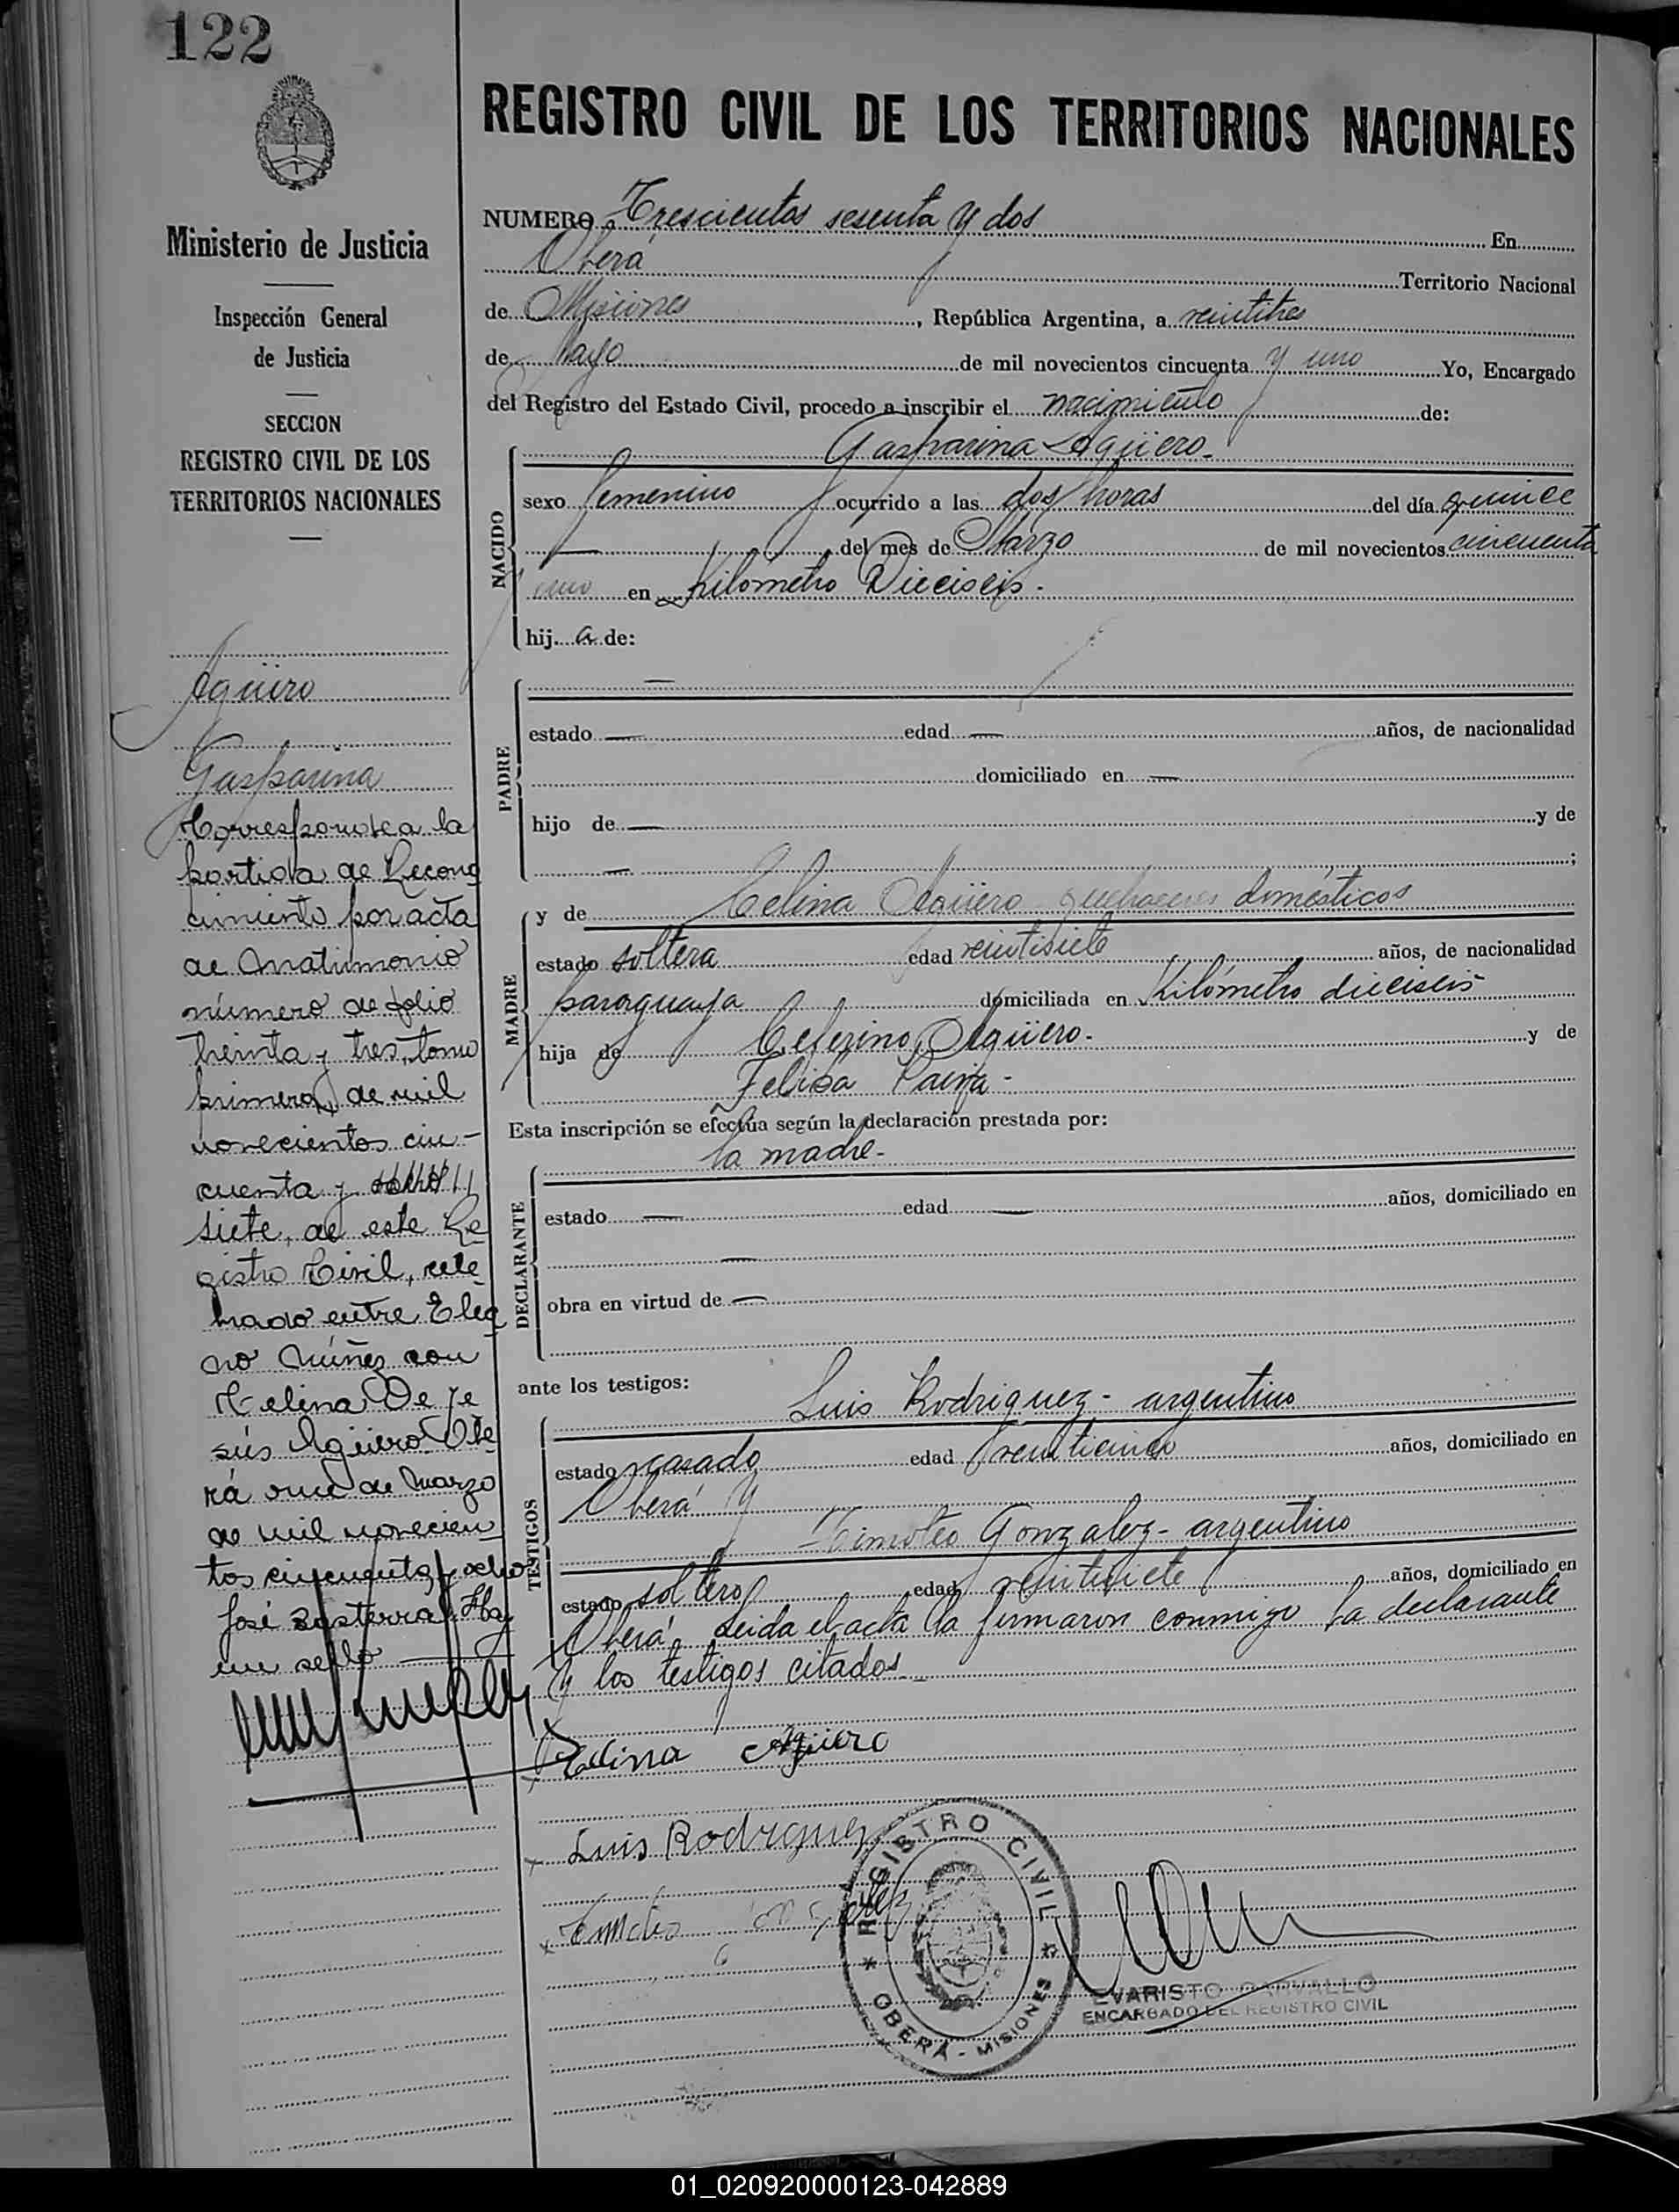 122
Ministerio de Justicia
Inspección General
de Justicia
SECCION
REGISTRO CIVIL DE LOS
TERRITORIOS NACIONALES
Agüero
Gasparina
Corresponde a la
partida de Recono
cimiento por acta
de Matrimonio
número de folio
treinta y tres, tomo
primero, de mil
novecientos cin-
cuenta y
siete, de este Re
gistro Civil, cele
brado entre
no Núñez con
Celina De Je
sús Agüero Obe
rá once de Marzo
de mil novecien
tos cincuenta y ocho
José Basterra Hay
un sello
REGISTRO CIVIL DE LOS TERRITORIOS NACIONALES
NUMERO Trescientos sesenta y dos En
Oberá Territorio Nacional
de Misiones, República Argentina, a veintitres
de Mayo de mil novecientos cincuenta y uno Yo, Encargado
del Registro del Estado Civil, procedo a inscribir el nacimiento de:
Gasparina Agüero-
NACIDO
sexo femenino ocurrido a las dos horas del día quince
— del mes de Marzo de mil novecientos cincuenta
y uno en Kilómetro Dieciseis.
hij a de:
—
PADRE
estado — edad — años, de nacionalidad
domiciliado en —
hijo de — y de
— ;
MADRE
y de Celina Agüero quehaceres domésticos
estado soltera edad veintisiete años, de nacionalidad
paraguaya domiciliada en Kilómetro dieciseis
hija de Ceferino Agüero- y de
Felisa
Esta inscripción se efectúa según la declaración prestada por:
la madre-
DECLARANTE
estado — edad — años, domiciliado en
—
obra en virtud de —
ante los testigos:
Luis Rodriguez- argentino
TESTIGOS
estado casado edad veinticinco años, domiciliado en
Oberá y
Timoteo Gonzalez- argentino
estado soltero edad veintisiete años, domiciliado en
Oberá Leida el acta la firmaron conmigo la declarante
y los testigos citados
Celina Agüero
Luis Rodriguez
REGISTRO CIVIL
OBERÁ - MISIONES
EVARISTO CARVALLO
ENCARGADO DEL REGISTRO CIVIL
01_020920000123-042889